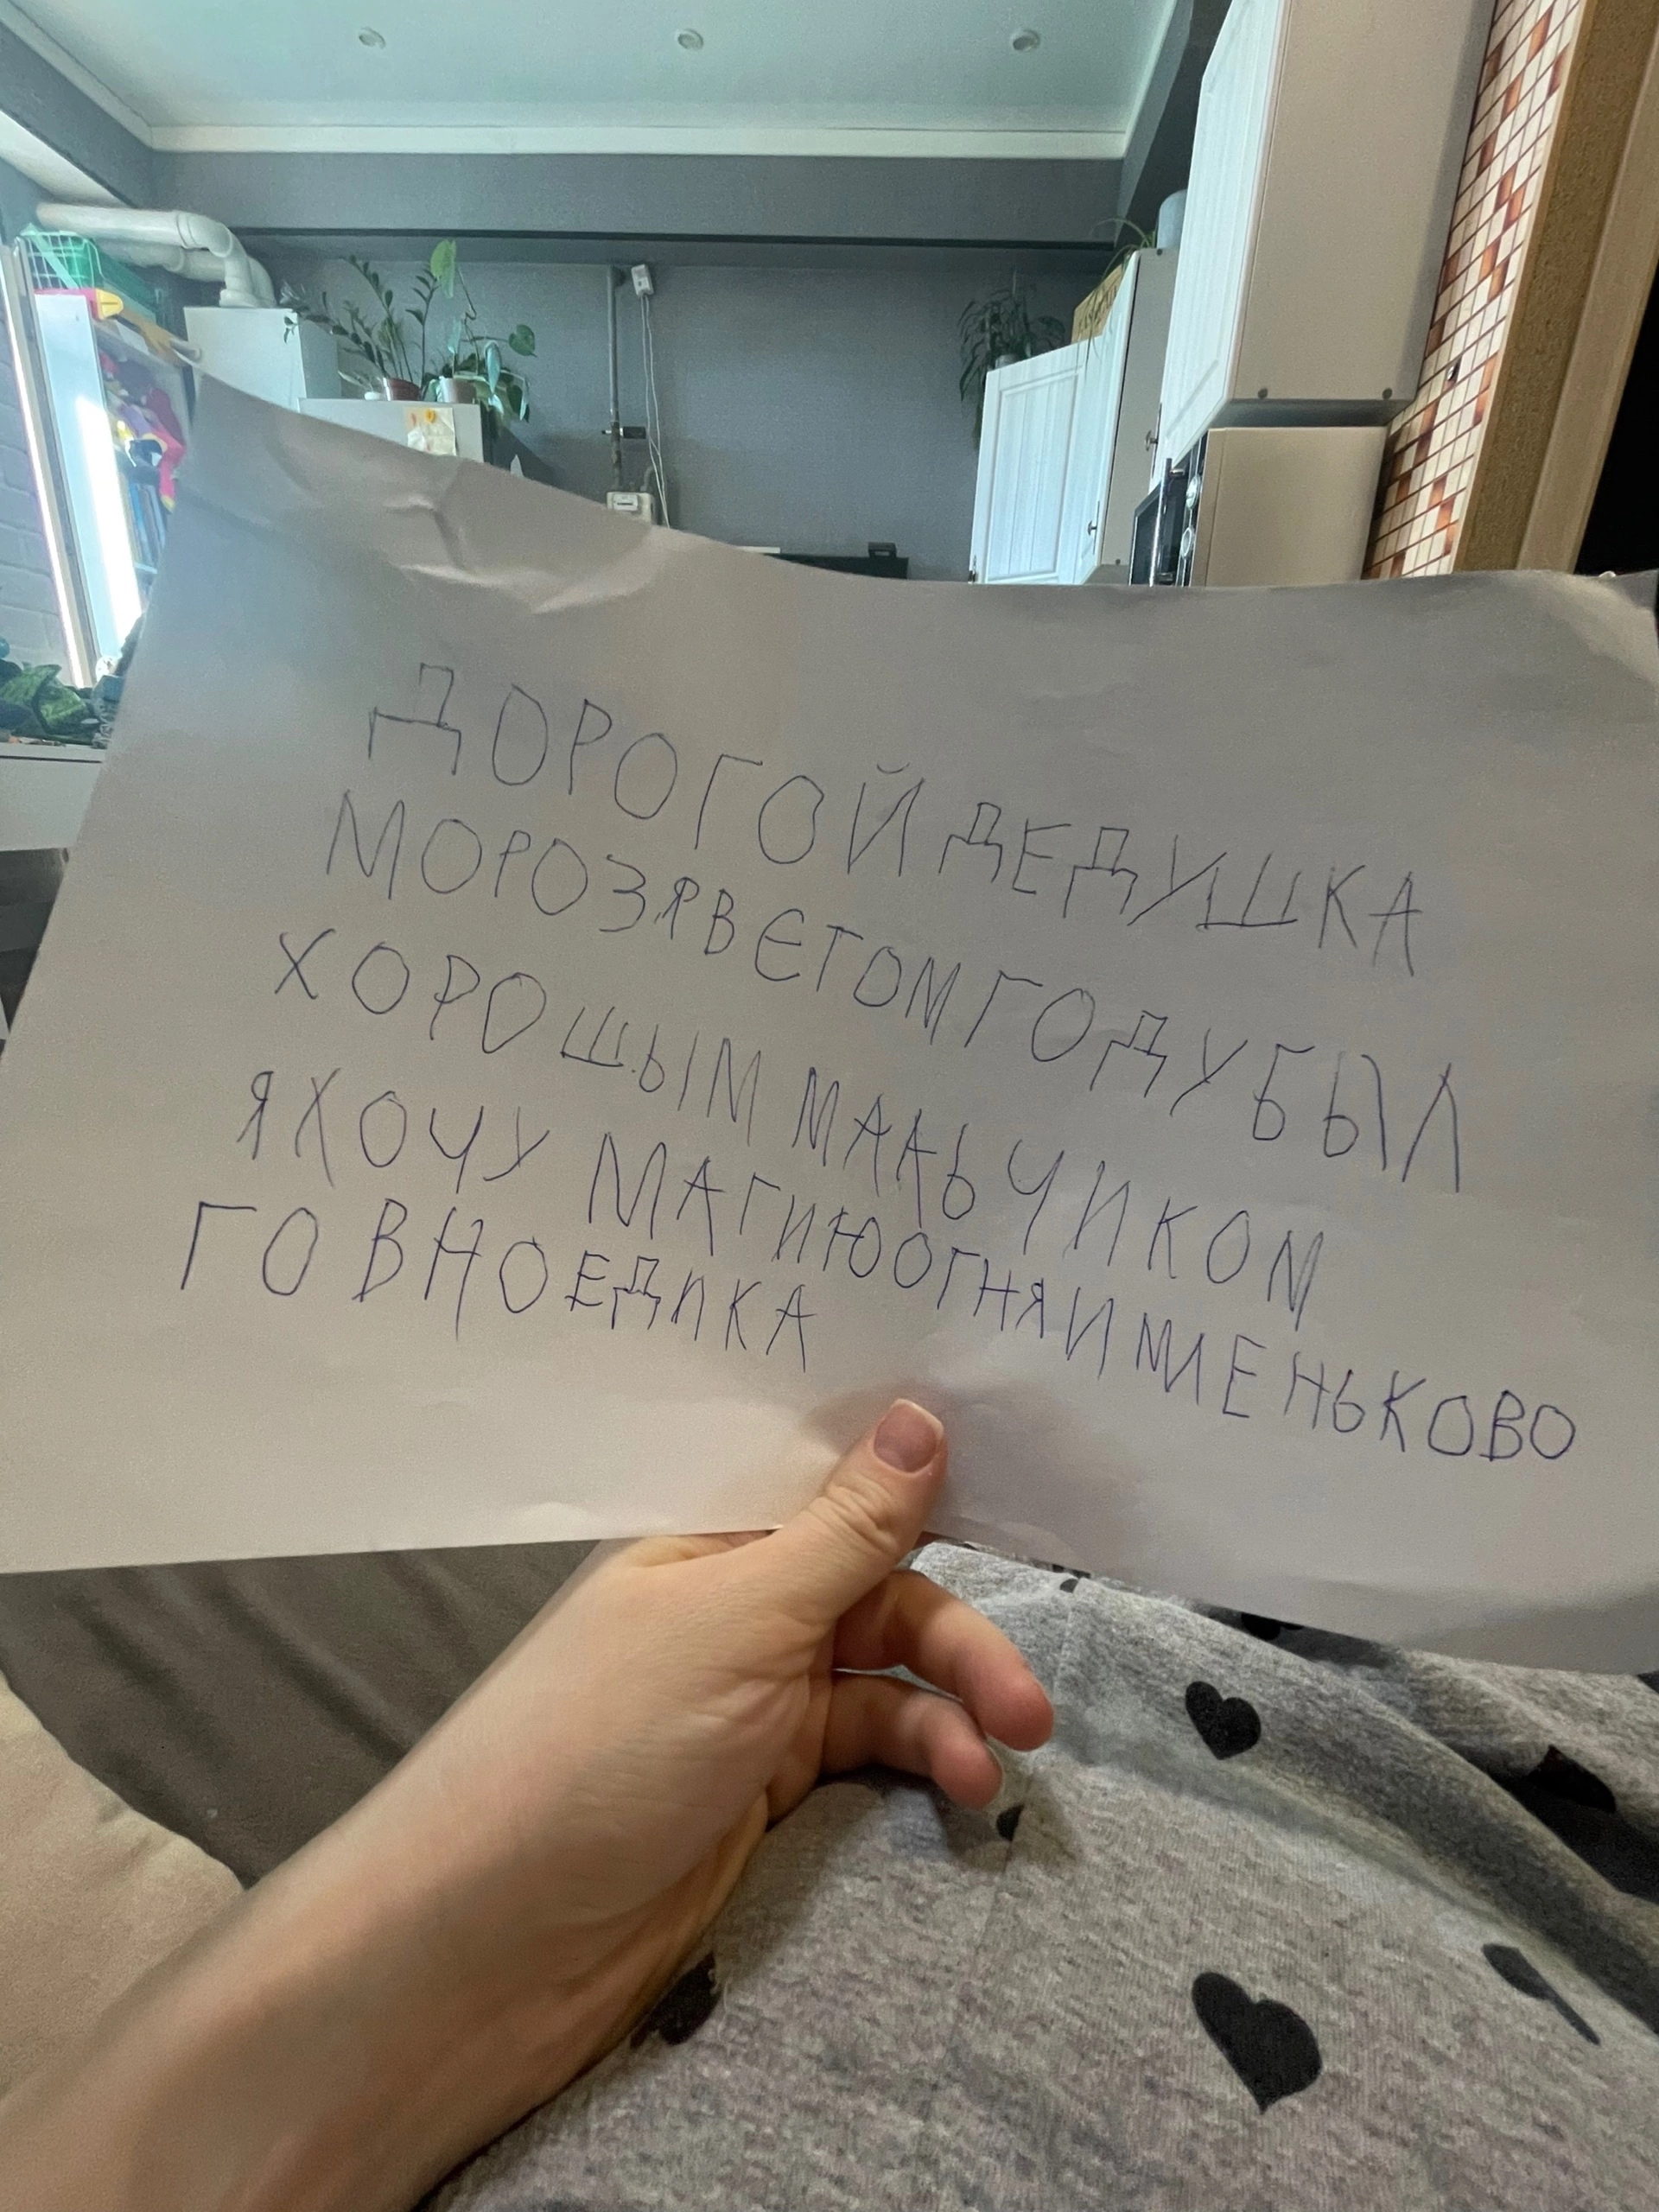 ДОРОГОЙ ДЕДУШКА
МОРОЗ Я В ЕТОМ ГОДУ БЫЛ
ХОРОШЫМ МАЬЧИКОМ
Я ХОЧУ МАГИЮ ОГНЯ И МЛЕНЬКОВО
ГОВНОЕДИКА